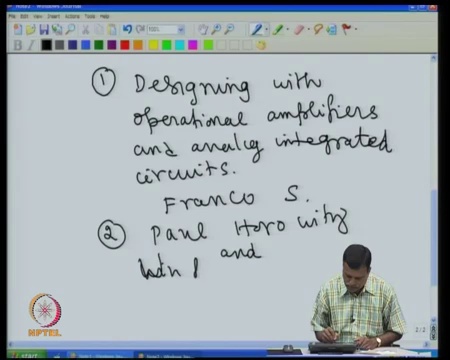 Note2 - Windows Journal
File Edit View Insert Actions Tools Help
B I
① Designing with
operational amplifiers
and analog integrated
circuits.
Franco S.
② Paul Horowitz
and
NPTEL
start
2/2